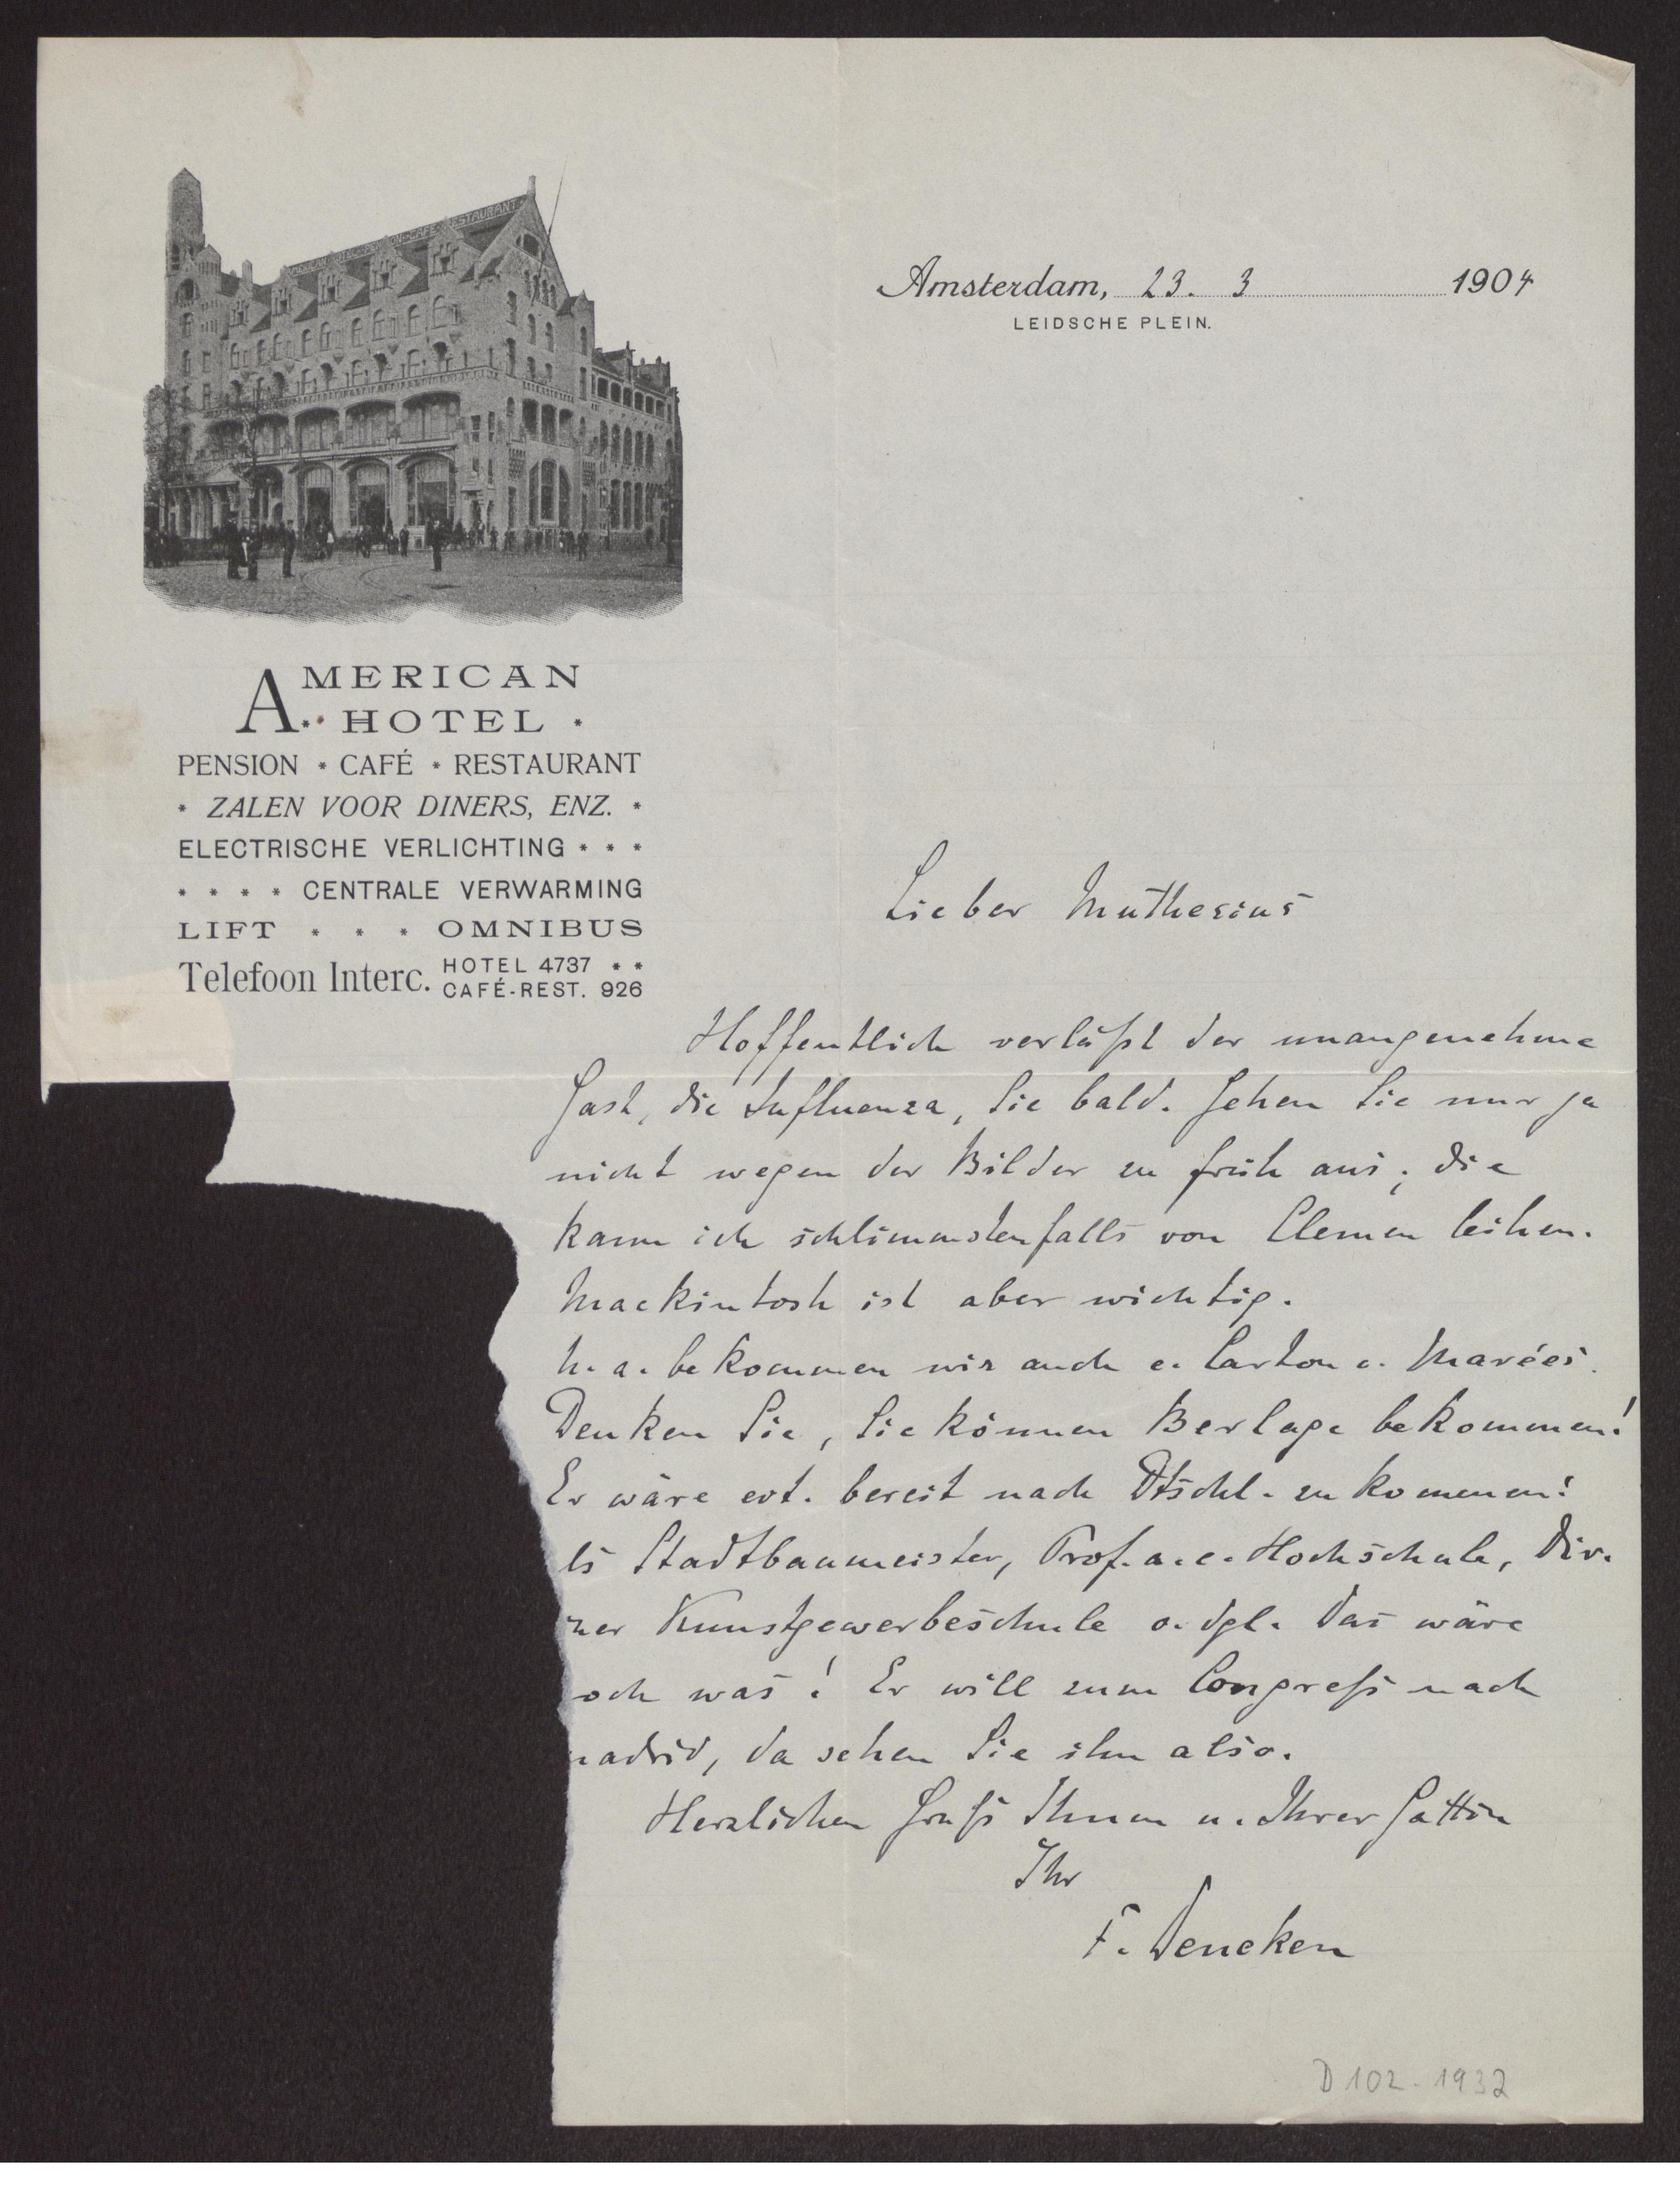 AMERICAN HOTEL PENSION CAFÉ RESTAURANT
Amsterdam, 23. 3 1904
LEIDSCHE PLEIN.
AMERICAN
* HOTEL *
PENSION * CAFÉ * RESTAURANT
* ZALEN VOOR DINERS, ENZ. *
ELECTRISCHE VERLICHTING * * *
* * * * CENTRALE VERWARMING
LIFT * * * OMNIBUS
Telefoon Interc. HOTEL 4737 * *
CAFÉ-REST. 926
Lieber Muthesius
Hoffentlich verläßt der unangenehme
Gast, die Influenza, Sie bald. Gehen Sie nur ja
nicht wegen der Bilder zu früh aus; die
kann ich schlimmstenfalls von Clemen leihen.
Mackintosh ist aber wichtig.
U. a. bekommen wir auch e. Carton v. Marées.
Denken Sie, Sie können Berlage bekommen!
Er wäre evt. bereit nach Dtschl. zu kommen!
ls Stadtbaumeister, Prof. a. e. Hochschule, Dir.
ner Kunstgewerbeschule o. dgl. Das wäre
och was! Er will zum Congreß nach
Madrid, da sehen Sie ihn also.
Herzlichen Gruß Ihnen u. Ihrer Gattin
Ihr
F. Deneken
D 102-1932